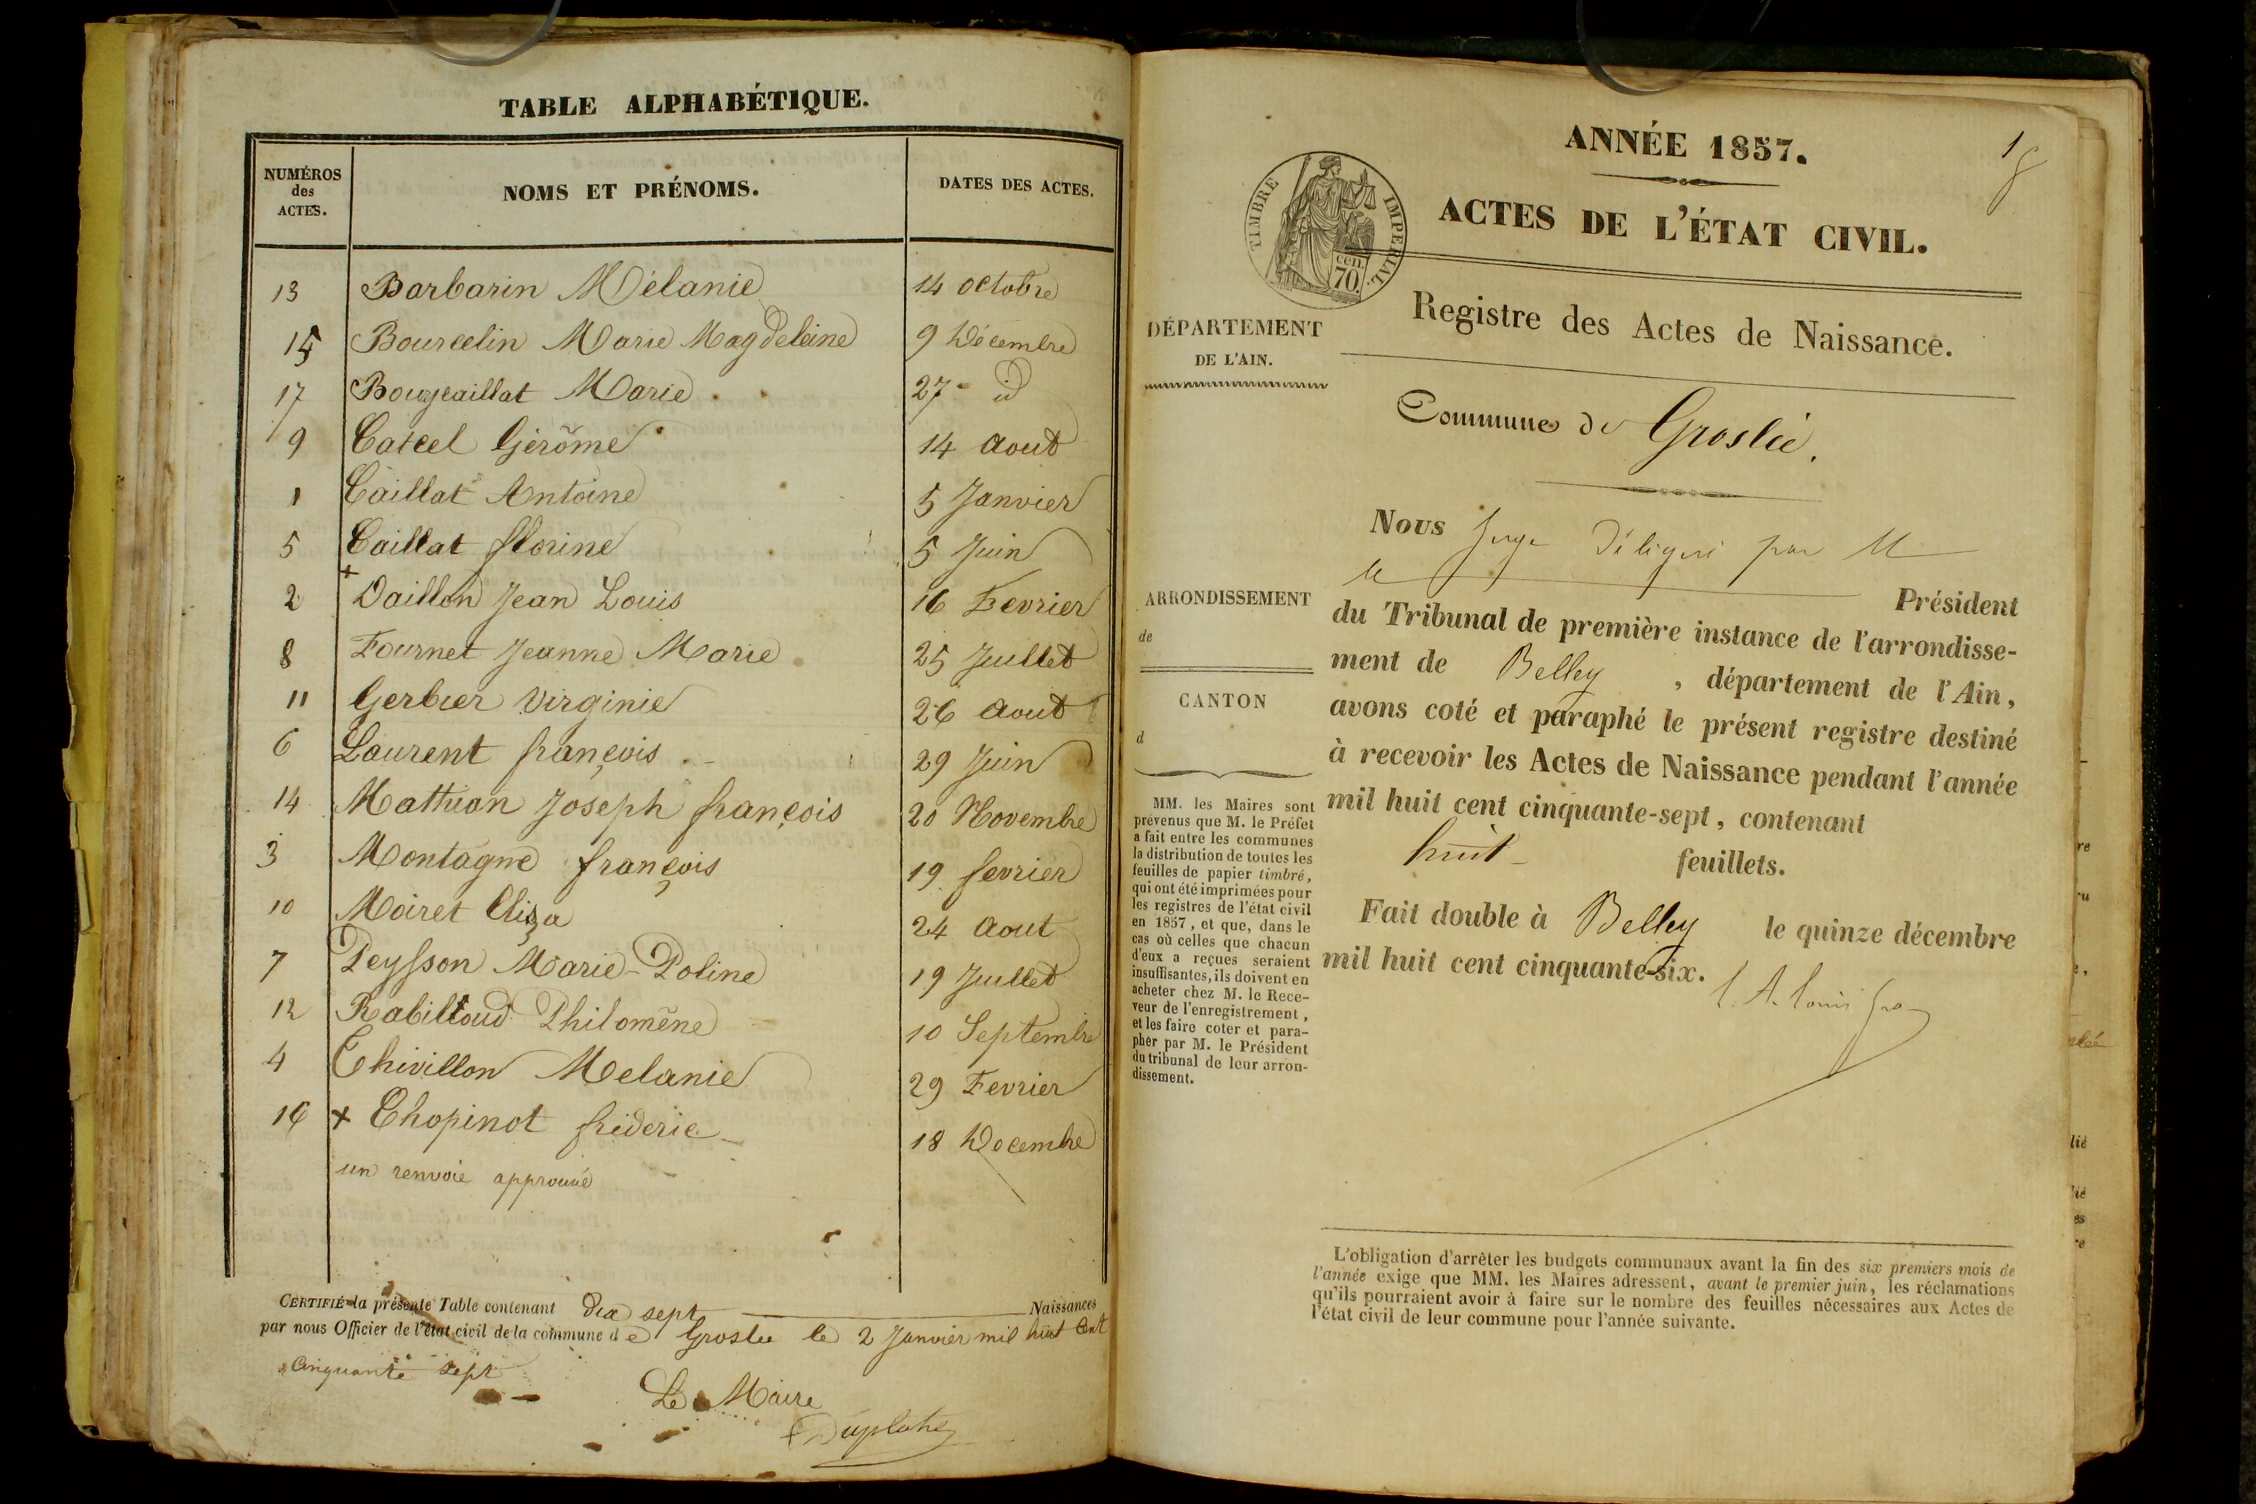 TABLE ALPHABÉTIQUE.
NUMÉROS des ACTES. NOMS ET PRÉNOMS. DATES DES ACTES.
13 Barbarin Mélanie 14 octobre
15 Bourcelin Marie Magdeleine 9 Décembre
17 Marie 27 id
9 Gérôme 14 Aout
1 Caillat Antoine 5 Janvier
5 Caillat florine 5 Juin
2 + Daillon Jean Louis 16 Fevrier
8 Fournet Jeanne Marie 25 Juillet
11 Gerbier Virginie 26 Aout
6 Laurent françois 29 Juin
14 Joseph françois 20 Novembre
3 Montagne françois 19 fevrier
10 Moiret Eliza 24 Aout
7 Peysson Marie-Poline 19 Juillet
12 Rabilloud Philomène 10 Septembre
4 Thivillon Melanie 29 Fevrier
16 + Chopinot frideric 18 Decembre
un renvoie approuvé
CERTIFIÉ la présente Table contenant dix sept Naissances
par nous Officier de l'état civil de la commune de Groslee le 2 Janvier mil huit Cent
Cinquante sept
Le Maire
ANNÉE 1857.
1
TIMBRE IMPÉRIAL.
cen. 70.
ACTES DE L'ÉTAT CIVIL.
Registre des Actes de Naissance.
DÉPARTEMENT
DE L'AIN.
Commune de Groslée.
Nous Juge Délégué par M
le Président
du Tribunal de première instance de l'arrondisse-
ment de Belley, département de l'Ain,
avons coté et paraphé le présent registre destiné
à recevoir les Actes de Naissance pendant l'année
mil huit cent cinquante-sept, contenant
huit feuillets.
Fait double à Belley le quinze décembre
mil huit cent cinquante-six.
ARRONDISSEMENT
de
CANTON
d
MM. les Maires sont
prévenus que M. le Préfet
a fait entre les communes
la distribution de toutes les
feuilles de papier timbré,
qui ont été imprimées pour
les registres de l'état civil
en 1857, et que, dans le
cas où celles que chacun
d'eux a reçues seraient
insuffisantes, ils doivent en
acheter chez M. le Rece-
veur de l'enregistrement,
et les faire coter et para-
pher par M. le Président
du tribunal de leur arron-
dissement.
L'obligation d'arrêter les budgets communaux avant la fin des six premiers mois de
l'année exige que MM. les Maires adressent, avant le premier juin, les réclamations
qu'ils pourraient avoir à faire sur le nombre des feuilles nécessaires aux Actes de
l'état civil de leur commune pour l'année suivante.